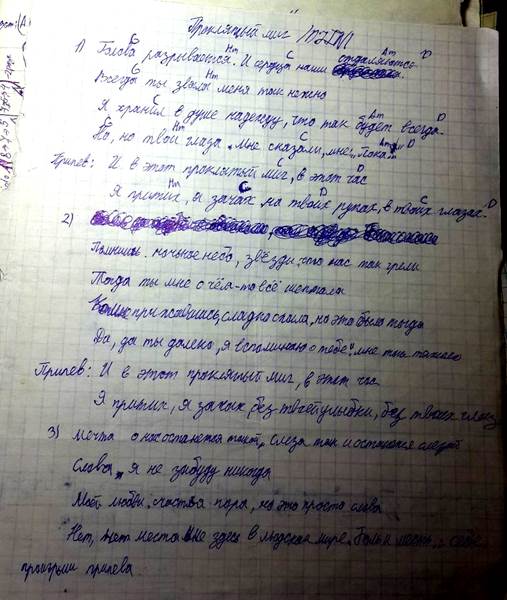 Проклятый миг
G Hm C Am D
1) Голова разрывается. И сердца наши отдаляются.
Hm
Всегда ты звала меня так нежно
Am D
Я хранил в душе надежду, что так будет всегда.
G Hm C D
Но, но твои глаза мне сказали, мне: "Пока"
C D
Припев: И в этот проклятый миг, в этот час
Hm C D C D
Я притих, я зачах на твоих руках, в твоих глазах.
2)
Помнишь ночное небо, звёзды, что нас так грели
Тогда ты мне о чём-то всё шептала
прижавшись, сладко спала, но это было тогда
Да, да ты далеко, я вспоминаю о тебе, мне так тяжело
Припев: И в этот проклятый миг, в этот час
Я притих, я зачах без твоей улыбки, без твоих глаз
3) Мечта о нас останется такой, слеза так и останется слезой
Слова, я не забуду никогда
любви, счастья пора, но это просто слова
Нет, нет места мне здесь в людском мире.
проигрыш припева